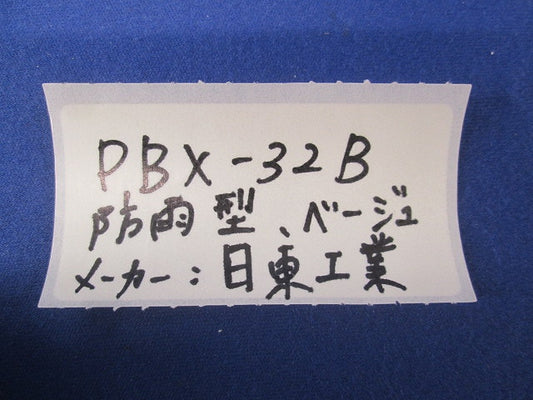 PBX-32B
防雨型、ベージュ
メーカー:日東工業